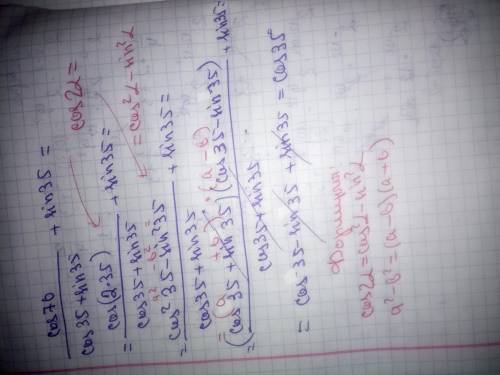 cos70 / cos35+sin35 + sin35 =
cos2α =
= cos²α - sin²α
= cos(2·35) / cos35+sin35 + sin35 =
a² - b² =
= cos²35 - sin²35 / cos35+sin35 + sin35 =
= (a + b) · (a - b)
= (cos35+sin35)(cos35-sin35) / cos35+sin35 + sin35 =
= cos35 - sin35 + sin35 = cos35
Формулы:
cos2α = cos²α - sin²α
a² - b² = (a - b)(a + b)